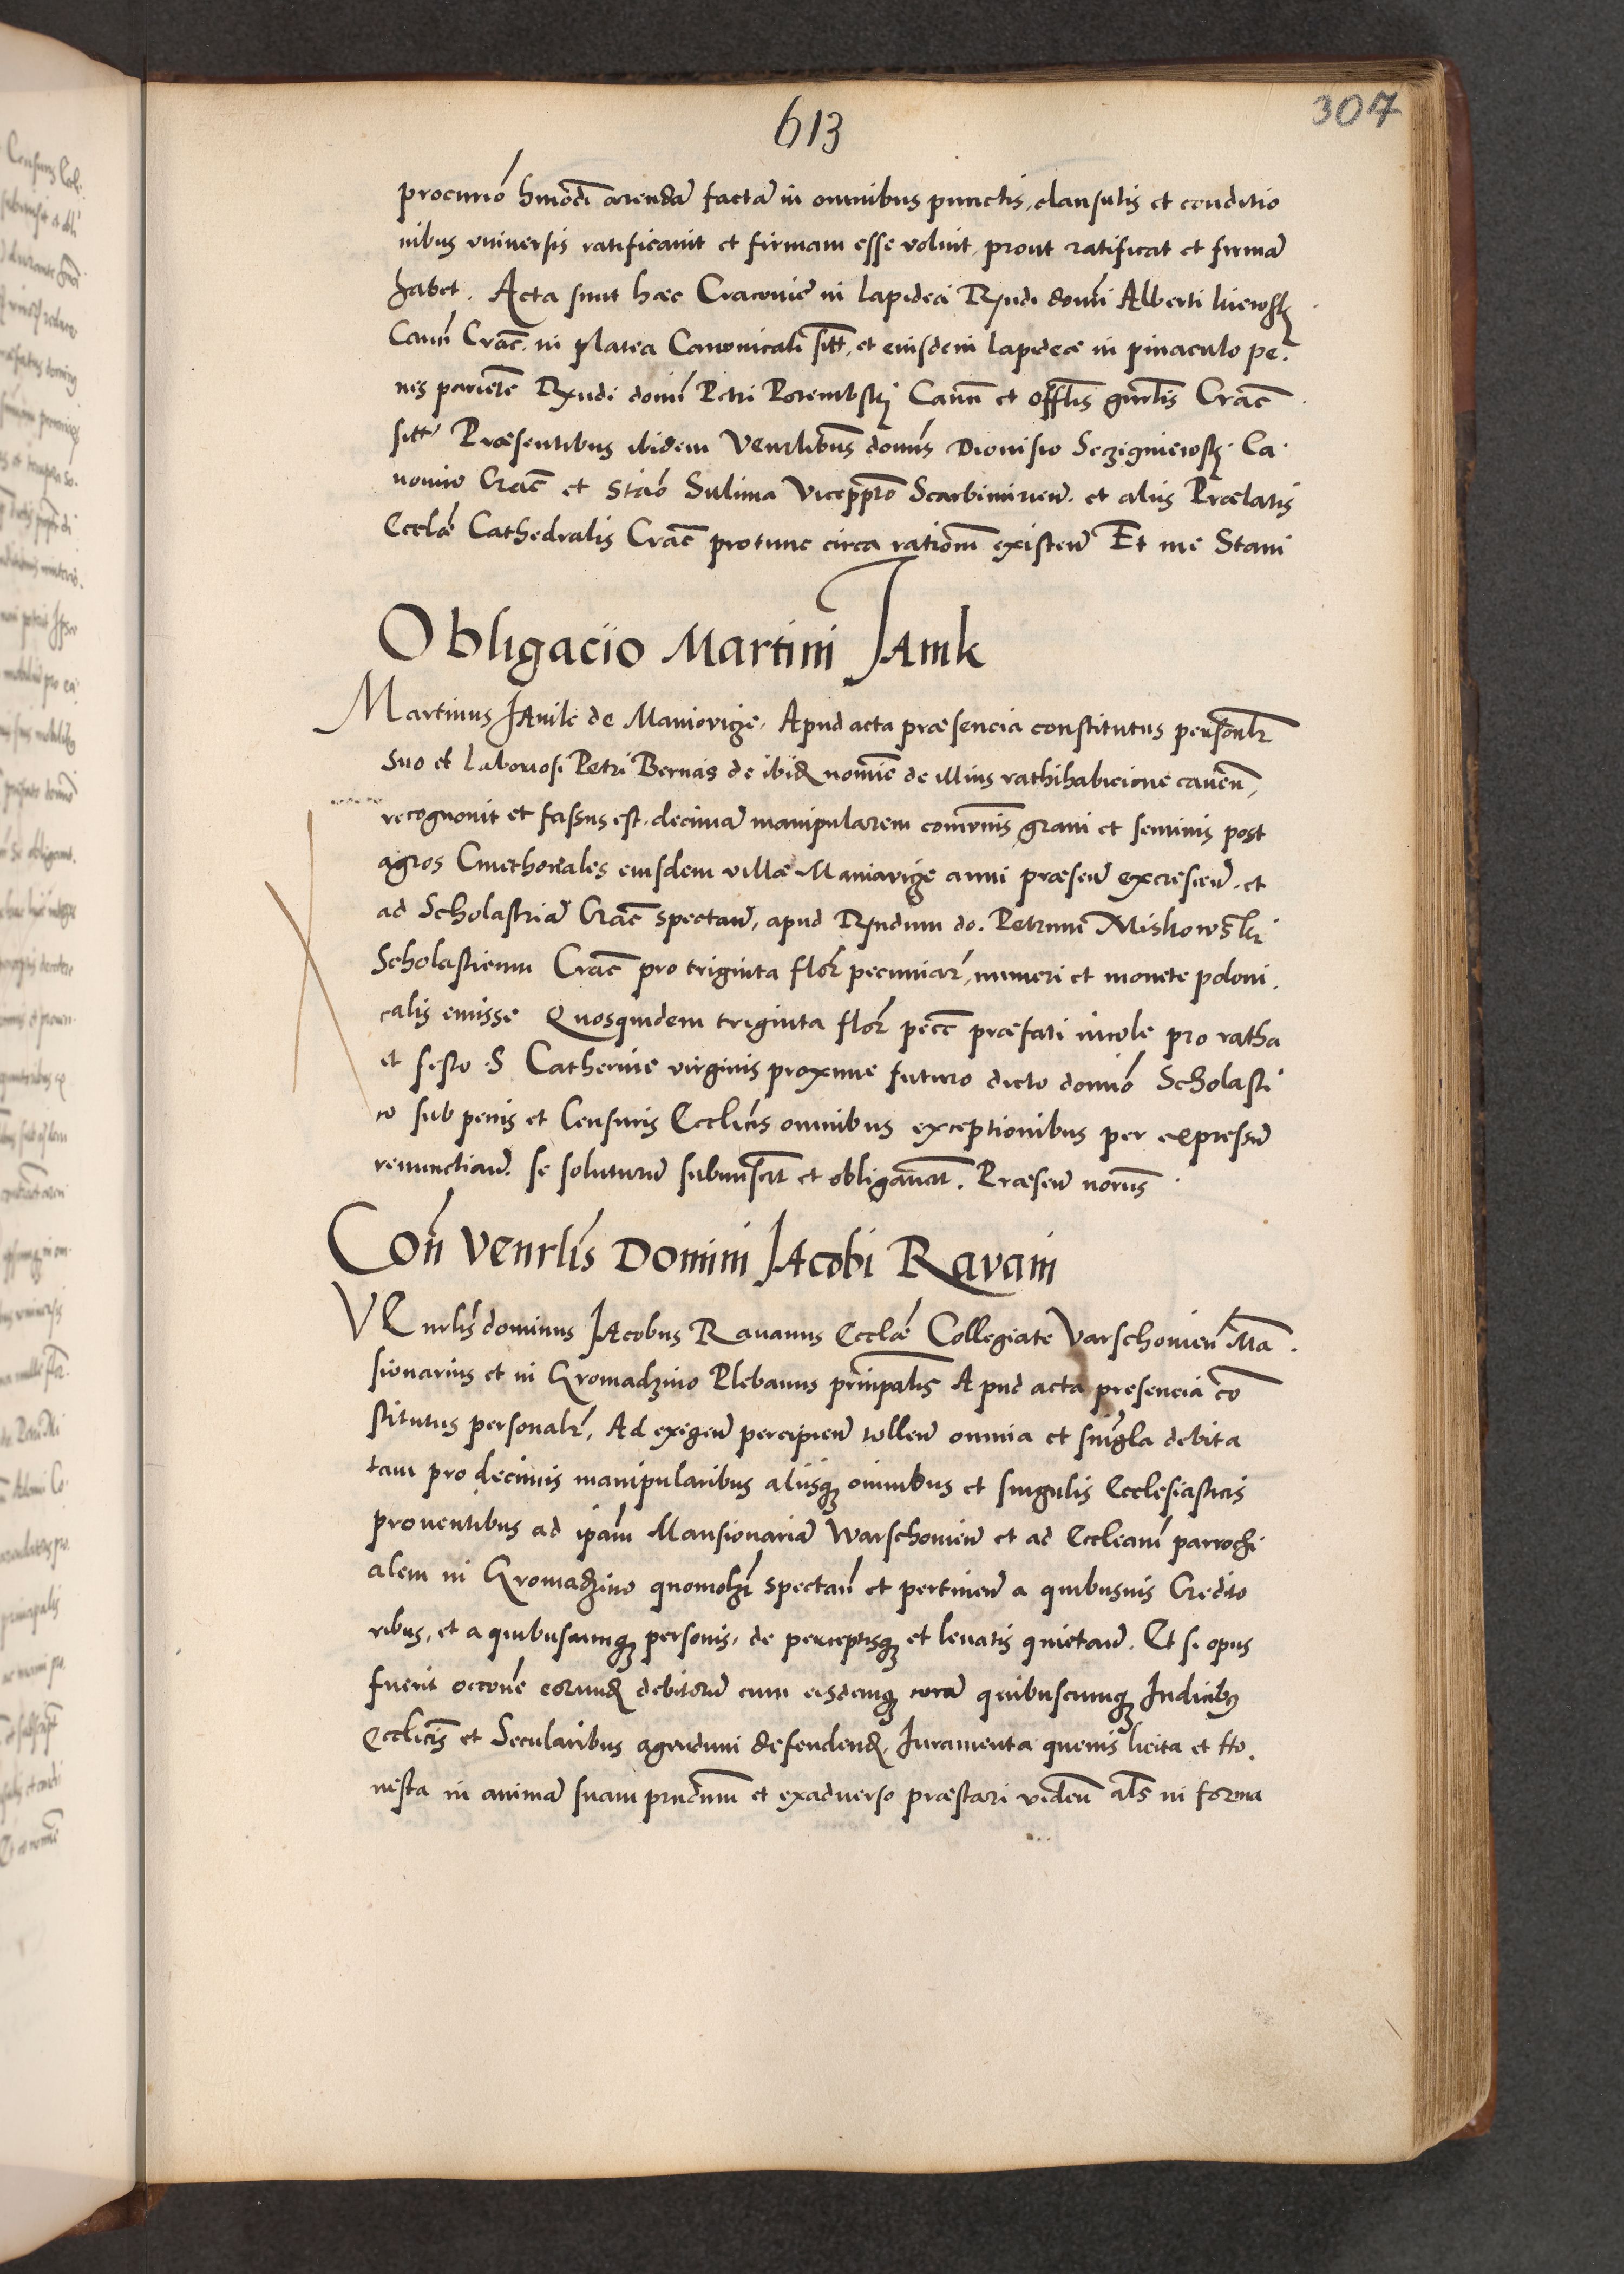 613
307
procurio hmodi arenda facta in omnibus punctis, clausulis et conditio
nibus vniuersis ratificauit et firmam esse voluit, prout ratificat et firma
habet. Acta sunt hæc Cracouie in lapidea Rndi domi Alberti kiewsk
Cann Crac. in platea Canonicali sitt, et eiusdem lapideæ in pinaculo pe.
nes pariete Rndi domi Petri Porembskj Cann et Offlis gnrlis Crac
sitt Præsentibus ibidem Venrlibus domis Dionisio Seczigniewskj Ca
nonico Crac et Stao Sulima Vicepptro Scarbimirien. et aliis Prælatis
Ecclæ Cathedralis Crac protunc circa rationem existen Et me Stani
Obligacio Martini Janik
Martinus Janik de Maniowize. Apud acta præsencia constitutus personlr
suo et laboriosi Petri Bernas de ibid nomie de illius rathihabicione cauen,
recognouit et fassus est. decima manipularem comunis grani et seminis post
agros Cmethonales eiusdem villæ Maniavize anni præsen excrescen. et
ad Scholastria Crac spectan, apud Rndum do. Petrum Miskowski
Scholasticum Crac pro triginta flor pecuniar, numeri et monete poloni.
calis emisse Quosquidem triginta flor pecc præfati incole pro ratha
et festo S Catherine virginis proxime futuro dicto domio Scholasti
co sub penis et Censuris Ecclicis omnibus exceptionibus per expressu
renunctian. se soluturu submiserut et obligauerut. Præsen norus
Con Venrlis Domini Jacobi Ravani
VEnrlis dominus Jacobus Rauanus Ecclæ Collegiate Varschouien Ma.
sionarius et in Gromadzino Plebanus principalis Apud acta presencia co
stitutus personalr, Ad exigen percipien tollen omnia et singla debita
tam pro decimis manipularibus aliisq omibus et singulis Ecclesiasticis
prouentibus ad ipam Mansionaria Warschouien et ad Eccleam parrochi
alem in Gromadzino quomolzt spectan et pertinen a quibusuis Credito
ribus, et a quibuscumq personis, de perceptisq et leuatis quietan. Et si opus
fuerit occone eorund debitoru cum eisdemq cora quibuscumq Iudicibus
Ecclicis et Secularibus agendum defendend. Iuramenta queuis licita et Ho.
nesta in anima suam prndum et exaduerso præstari viden als in forma